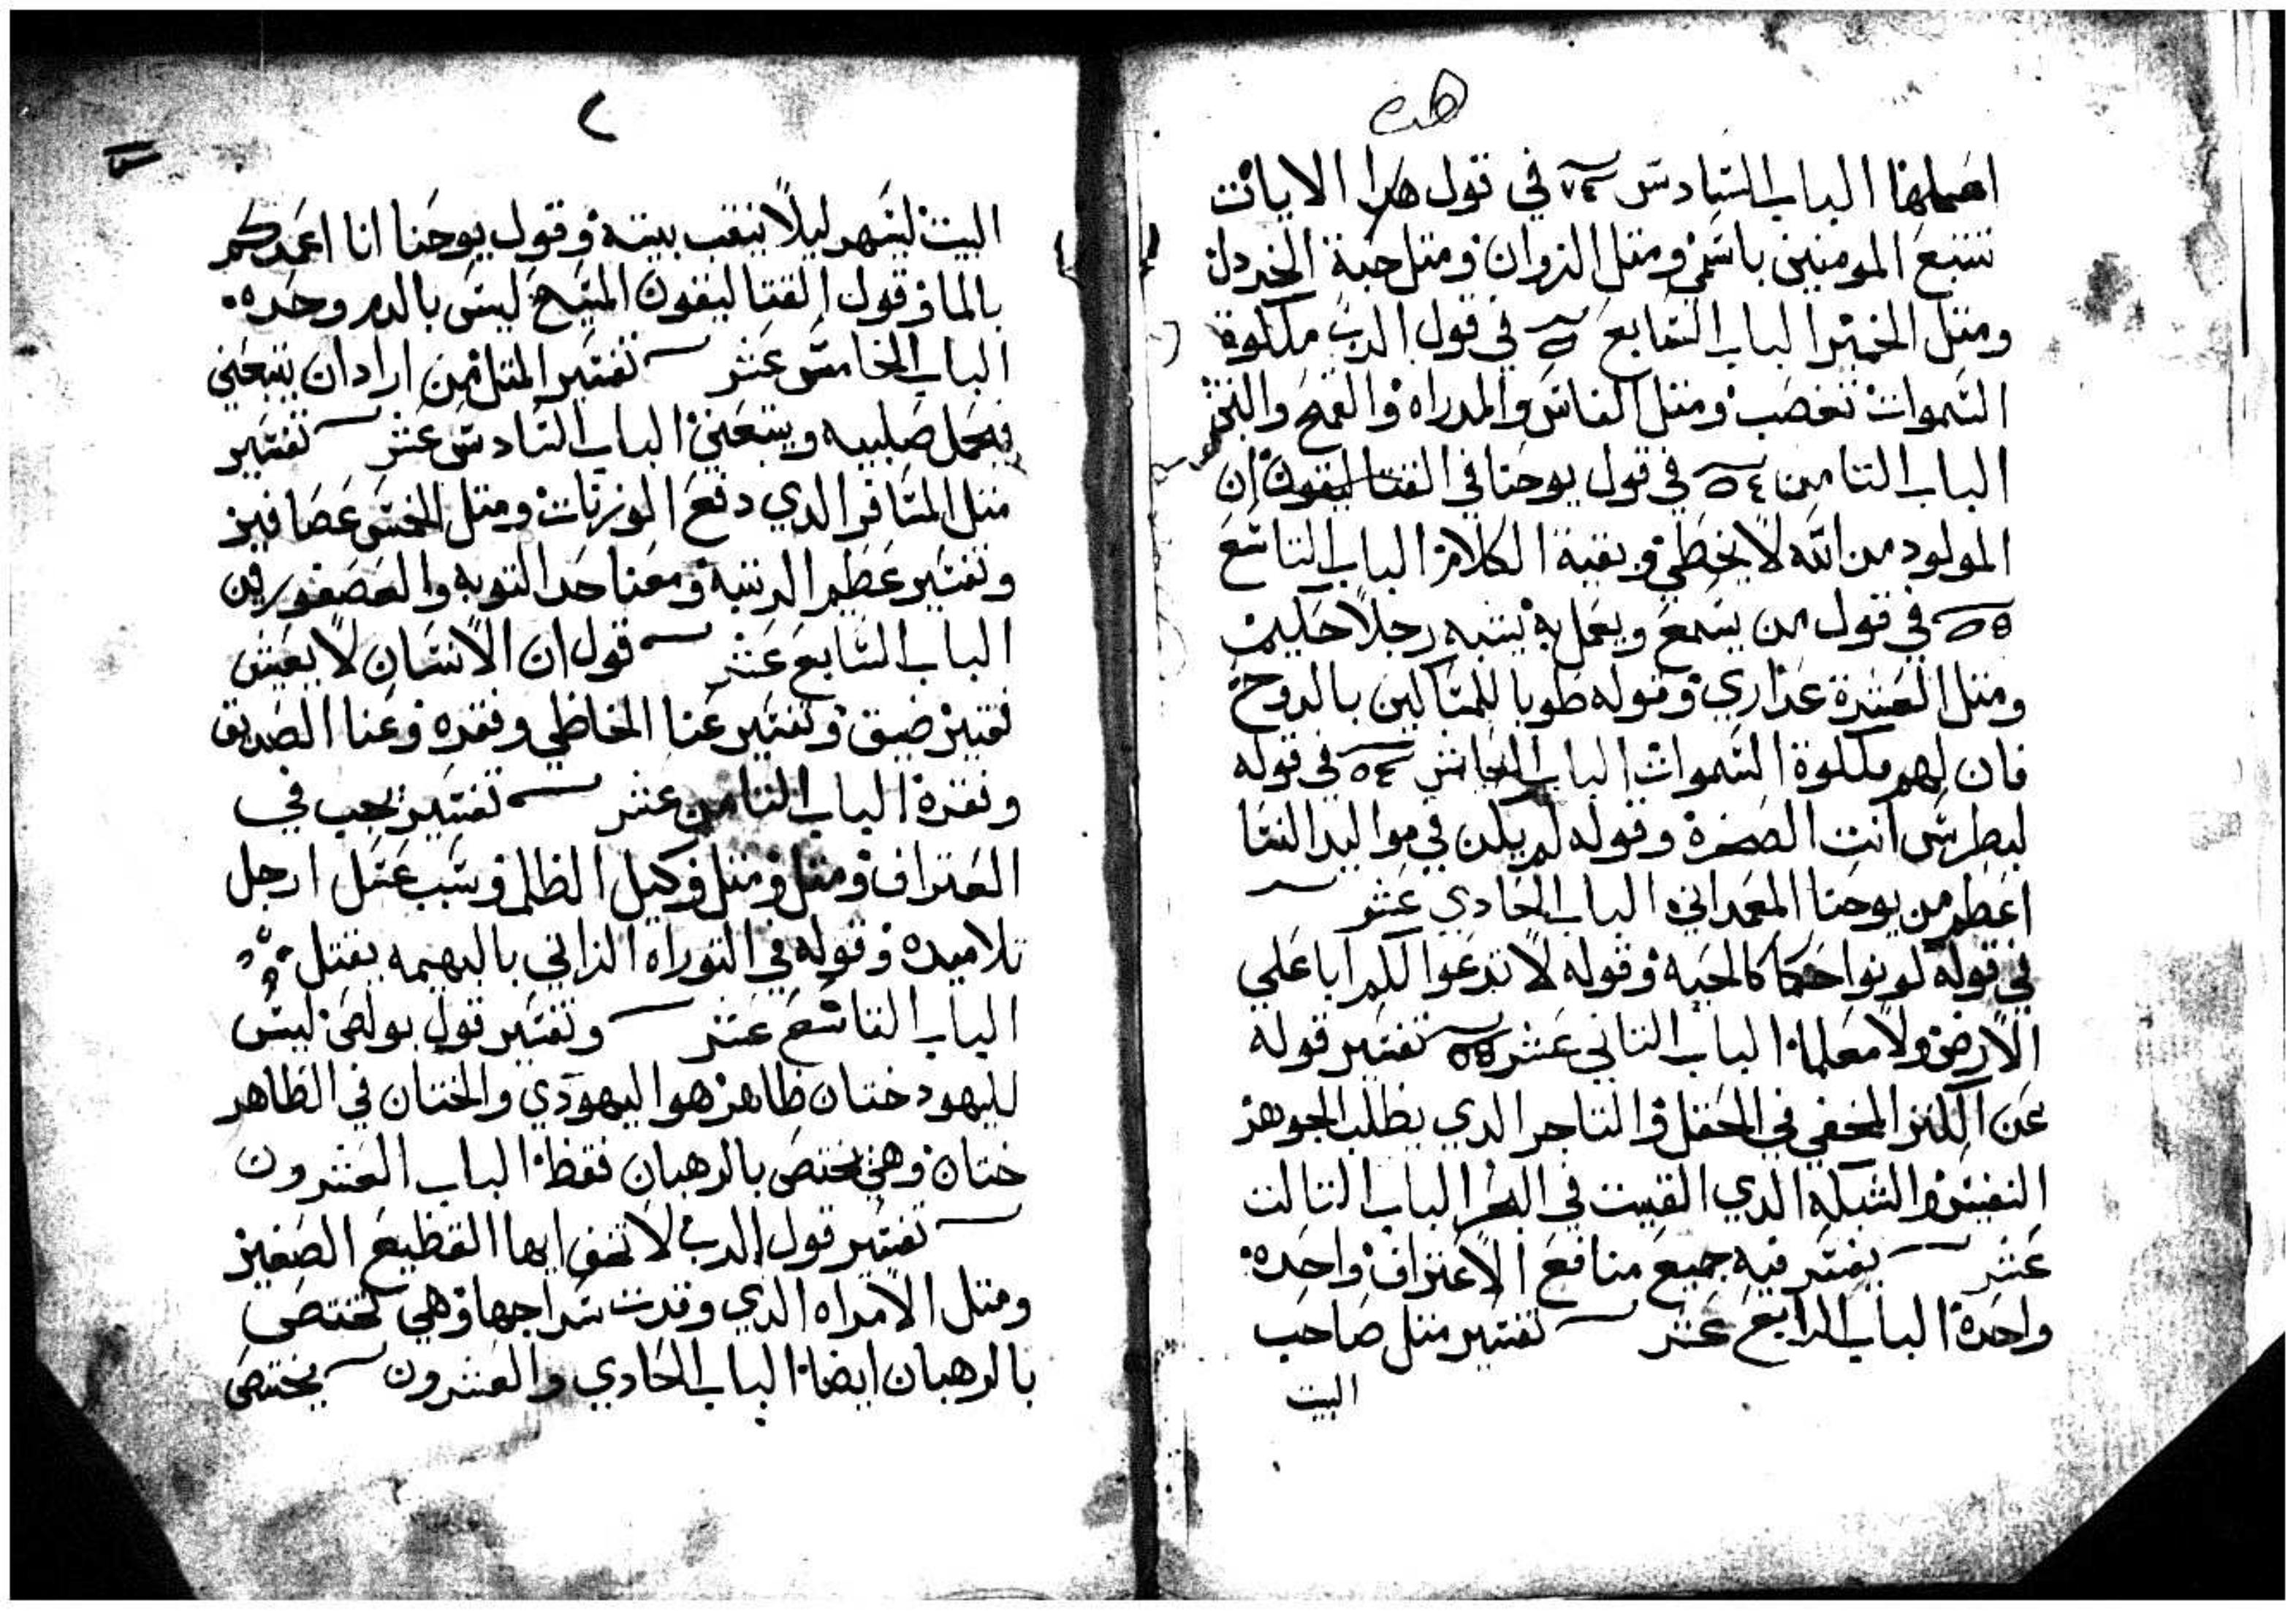 اعملها الباب السادس في قول هدا الايات
تتبع المومنين باسمي ومتل الزوان ومتل حبة الخردل
ومتل الخمير الباب السابع في قول الرب ملكوة
السموات تغصب ومتل الناس والمدراه والقمح والتبن
الباب التامن في قول يوحنا في القتاليقون ان
المولود من الله لا يخطي وبقية الكلام الباب التاسع
في قول من يسمع ويعمل به يشبه رجلا حليم
ومتل العشرة عذاري وقوله طوبا للمساكين بالروح
فان لهم ملكوة السموات الباب العاشر في قوله
لبطرس انت الصخرة وقوله لم يكن في مواليد النسا
اعظم من يوحنا المعمداني الباب الحادي عشر
في قوله كونوا حكما كالحية وقوله لا تدعوا لكم ابا علي
الارض ولا معلما الباب التاني عشر تفسير قوله
عن الكنز المخفي في الحقل والتاجر الدي يطلب الجوهر
النفيس والشبكه الدي القيت في البحر الباب التالت
عشر يفسر فيه جميع منافع الاعتراف واحده
واحدة الباب الرابع عشر تفسير متل صاحب
البيت
٢
البيت لسهر ليلا ينقب بيته وقول يوحنا انا اعمدكم
بالما وقول القتاليقون المسيح ليس بالدم وحده
الباب الخامس عشر تفسير المتل من اراد ان يتبعني
فيحمل صليبه ويتبعني الباب السادس عشر تفسير
متل المسافر الدي دفع الوزنات ومتل الخمس عصافير
وتفسير عظم الرتبه ومعنا حد التوبه والعصفورين
الباب السابع عشر قول ان الانسان لا يعيش
تفسير ضيق وتفسير غنا الخاطي وفقره وغنا الصديق
وفقره الباب التامن عشر تفسير يجب في
العتراف ومتل ومتل وكيل الظلم وسبب غسل ارجل
تلاميده وقوله في التوراه الزاني بالبهيمه يقتل
الباب التاسع عشر وتفسير قول بولص ليس
لليهود ختان ظاهر هوا اليهودي والختان في الظاهر
ختان وهي تختص بالرهبان فقط الباب العشرون
تفسير قول الرب لا تخف ايها القطيع الصغير
ومتل الامراه الدي وقدت سراجها وهي تختص
بالرهبان ايضا الباب الحادي والعشرون يختص